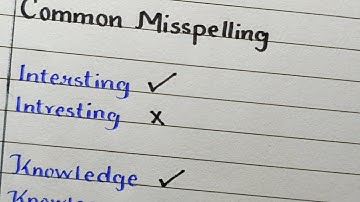 Common Misspelling
Intersting ✓
Intresting x
Knowledge ✓